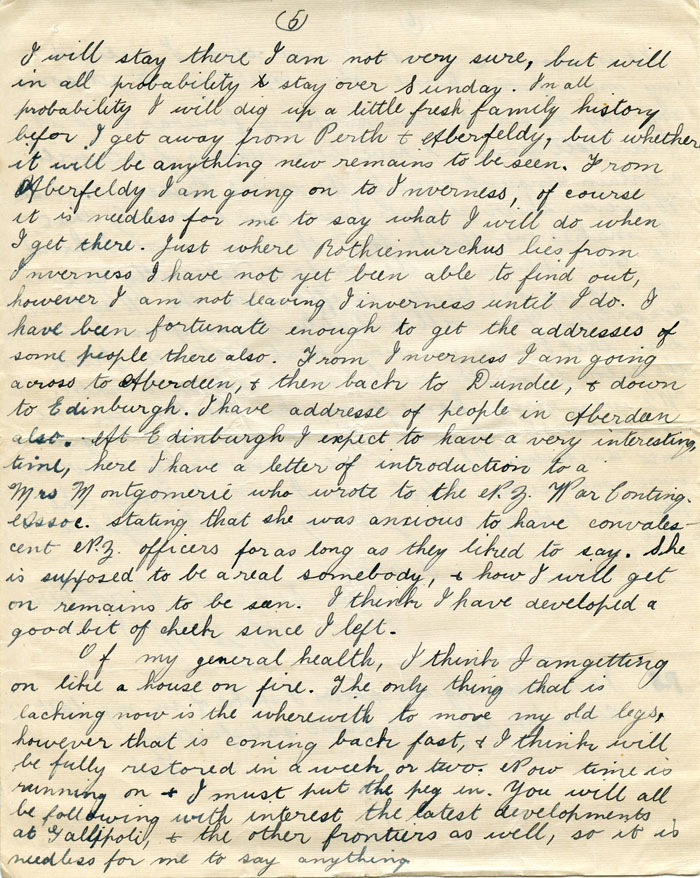 (5)
I will stay there I am not very sure, but will
in all probability & stay over Sunday. In all
probability I will dig up a little fresh family history
befor I get away from Perth & Aberfeldy, but whether
it will be anything new remains to be seen. From
Aberfeldy I am going on to Inverness, of course
it is needless for me to say what I will do when
I get there. Just where Rothiemurchus lies from
Inverness I have not yet been able to find out,
however I am not leaving Iinverness until I do. I
have been fortunate enough to get the addresses of
some people there also. From Inverness I am going
across to Aberdeen, & then back to Dundee, & down
to Edinburgh. I have addresse of people in Aberdeen
also. At Edinburgh I expect to have a very interesting
time, here I have a letter of introduction to a
Mrs Montgomerie who wrote to the N.Z. War Conting.
Assoc. stating that she was anxious to have convales-
cent N.Z. officers for as long as they liked to say. She
is supposed to be a real somebody, & how I will get
on remains to be seen. I think I have developed a
good bit of cheek since I left.
Of my general health, I think I am getting
on like a house on fire. The only thing that is
lacking now is the wherewith to move my old legs,
however that is coming back fast, & I think will
be fully restored in a week or two. Now time is
running on & I must put the peg in. You will all
be following with interest the latest developments
at Gallipoli, & the other frontiers as well, so it is
needless for me to say anything